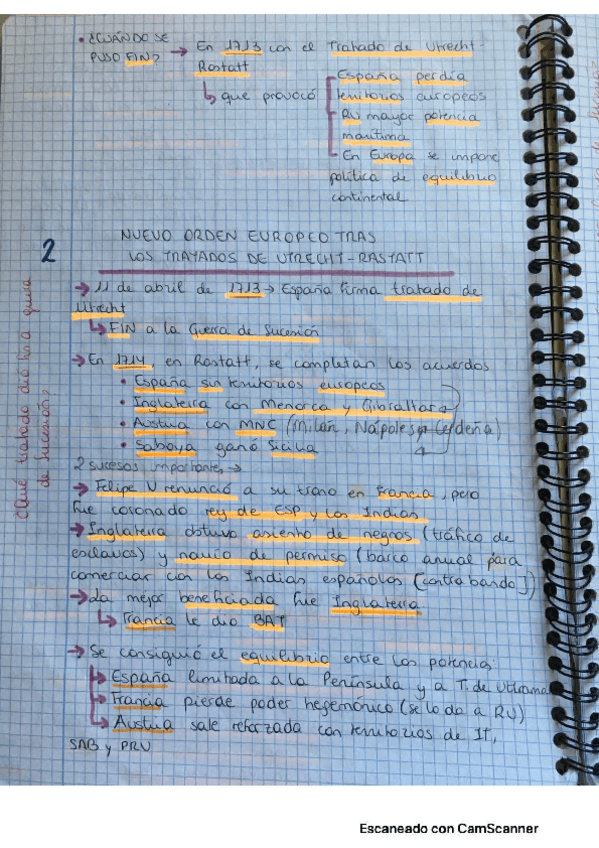 • ¿CUÁNDO SE
PUSO FIN? → En 1713 con el Tratado de Utrecht-
Rastatt
↳ que provocó
España perdía
territorios europeos
RU mayor potencia
marítima
En Europa se impone
política de equilibrio
continental
2
NUEVO ORDEN EUROPEO TRAS
LOS TRATADOS DE UTRECHT-RASTATT
→ 11 de abril de 1713 → España firma tratado de
Utrecht
↳ FIN a la Guerra de Sucesión
→ En 1714, en Rastatt, se completan los acuerdos
• España sin territorios europeos
• Inglaterra con Menorca y Gibraltar
• Austria con MNC (Milán, Nápoles y Cerdeña)
• Saboya ganó Sicilia
2 sucesos importantes →
→ Felipe V renunció a su trono en Francia, pero
fue coronado rey de ESP y las Indias
→ Inglaterra obtuvo asiento de negros (tráfico de
esclavos) y navío de permiso (barco anual para
comerciar con las Indias españolas [contrabando])
→ La mejor beneficiada fue Inglaterra
↳ Francia le dio BAT
→ Se consiguió el equilibrio entre las potencia:
→ España limitada a la Península y a T. de Ultramar
→ Francia pierde poder hegemónico (se lo da a RU)
→ Austria sale reforzada con territorios de IT,
SAB y PRU
¿Qué tratado dio fin a guerra
de Sucesión?
Escaneado con CamScanner